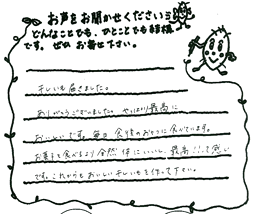 お声をお聞かせください
どんなことでも、ひとことでも結構
です。ぜひ お寄せ下さい。
干しいも届きました。
ありがとうございました。やっぱり最高に
おいしいです。毎日 食後のおやつに食べています。
お菓子を食べるより全然 体にいいし、最高!!って感じ
です。これからもおいしい干しいもを作って下さい。